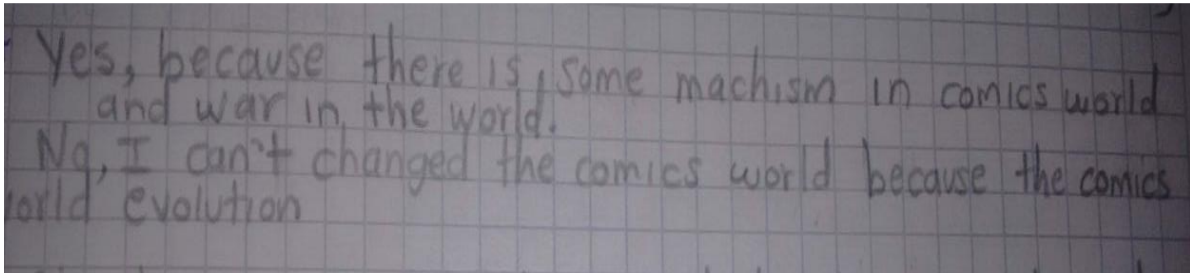 Yes, because there is some machism in comics world
and war in the world.
No, I can't changed the comics world because the comics
world evolution